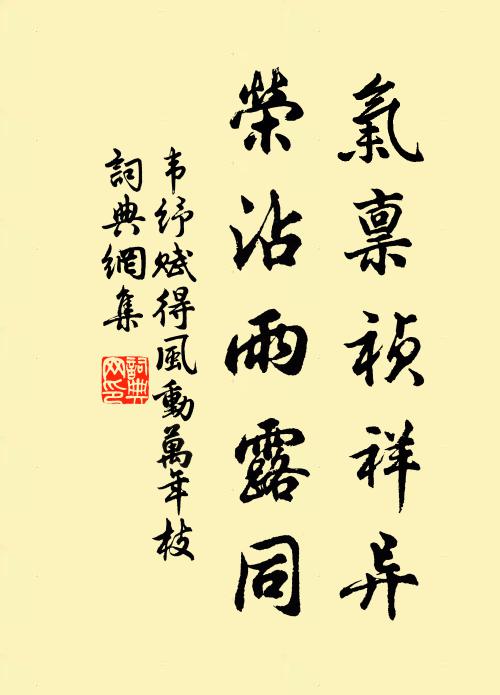 氣禀禎祥异
榮沾雨露同
韦纾赋得風動萬年枝
詞典網集
詞典网印